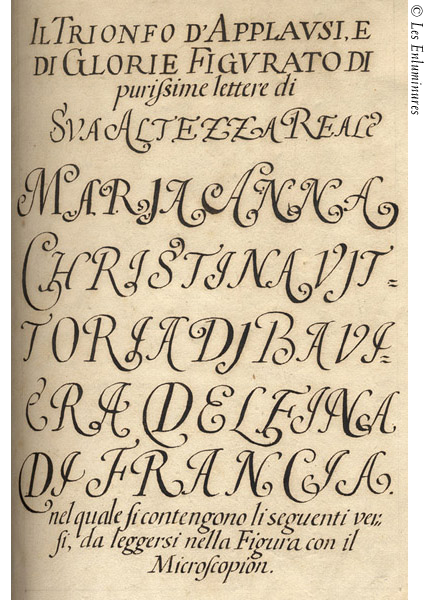 IL TRIONFO D'APPLAVSI, E
DI GLORIE FIGVRATO DI
purissime lettere di
SVA ALTEZZA REALE
MARIA ANNA
CHRISTINA VIT=
TORIA DI BAVI=
ERA DELFINA
DI FRANCIA.
nel quale si contengono li seguenti ver=
si, da leggersi nella Figura con il
Microscopion.
© Les Enluminures